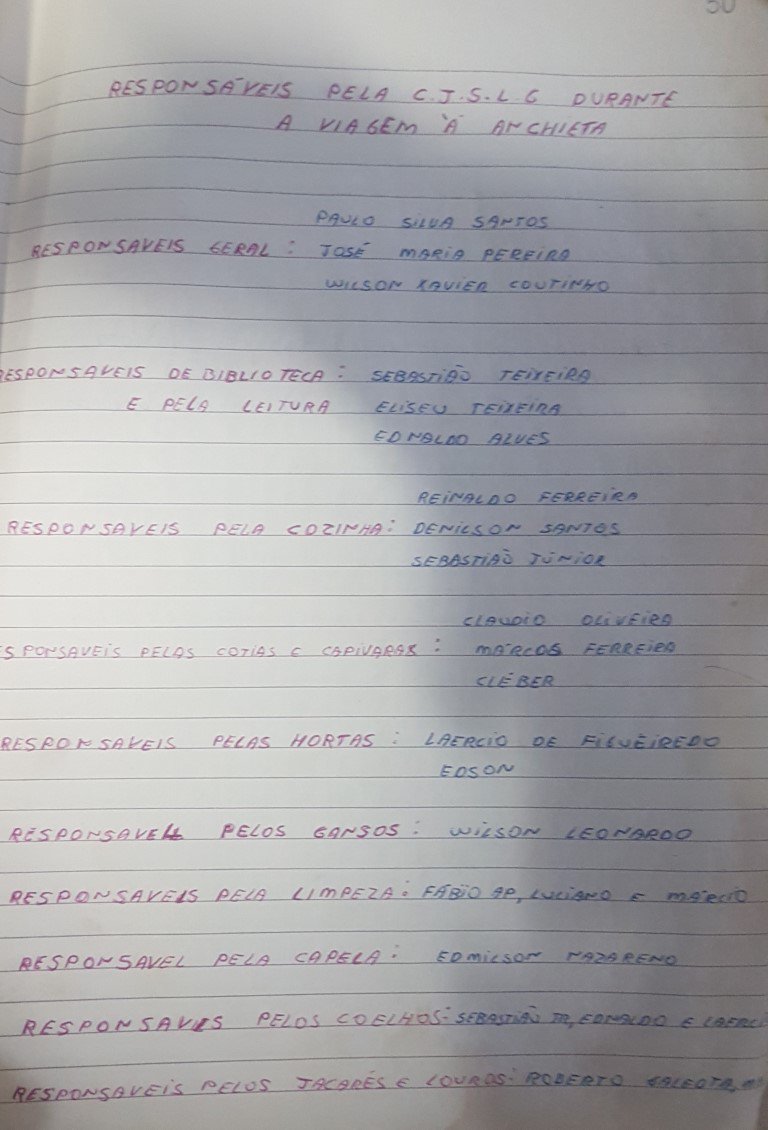 50
RESPONSÁVEIS PELA C.J.S.L.G DURANTE
A VIAGEM À ANCHIETA
PAULO SILVA SANTOS
RESPONSAVEIS GERAL: JOSÉ MARIA PEREIRA
WILSON XAVIER COUTINHO
RESPONSAVEIS DE BIBLIOTECA: SEBASTIÃO TEIXEIRA
E PELA LEITURA ELISEU TEIXEIRA
EDNALDO ALVES
REINALDO FERREIRA
RESPONSAVEIS PELA COZINHA: DENILSON SANTOS
SEBASTIÃO JÚNIOR
CLAUDIO OLIVEIRA
SPONSAVEIS PELAS COTIAS E CAPIVARAS: MÁRCOS FERREIRA
CLÉBER
RESPONSAVEIS PELAS HORTAS: LAERCIO DE FIGUEIREDO
EDSON
RESPONSAVEL PELOS GANSOS: WILSON LEONARDO
RESPONSAVEIS PELA LIMPEZA: FÁBIO AP, LUCIANO E MÁRCIO
RESPONSAVEL PELA CAPELA: EDMILSON NAZARENO
RESPONSAVIS PELOS COELHOS: SEBASTIÃO JR, EDNALDO E LAERCI
RESPONSAVEIS PELOS JACARÉS E LOUROS: ROBERTO